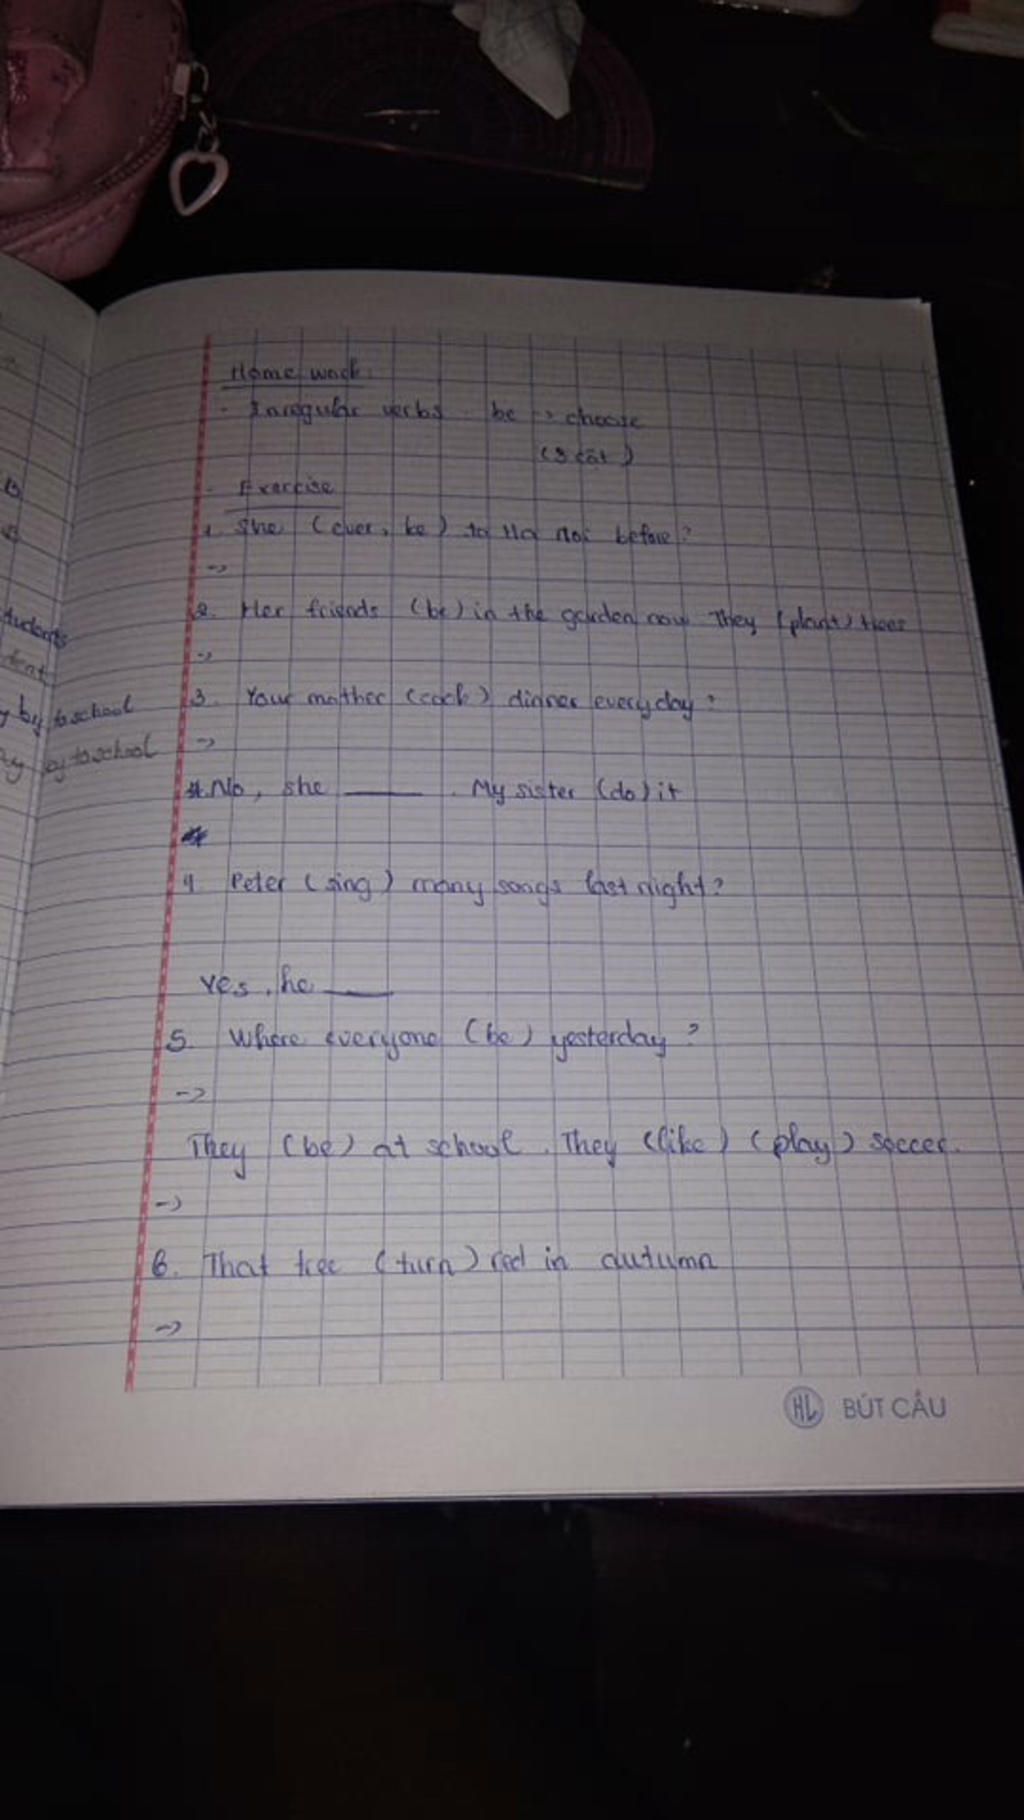 Home work:
- Irregular verbs be -> choose
(3 cột)
- Exercise
1. She (ever, be) to Ha Noi before?
->
2. Her friends (be) in the garden now They (plant) trees
->
3. Your mother (cook) dinner everyday?
->
No, she ____ . My sister (do) it
4. Peter (sing) many songs last night?
Yes, he ____
5. Where everyone (be) yesterday?
->
They (be) at school. They (like) (play) soccer.
->
6. That tree (turn) red in autumn
->
students
by to school
to school
HL BÚT CÂU